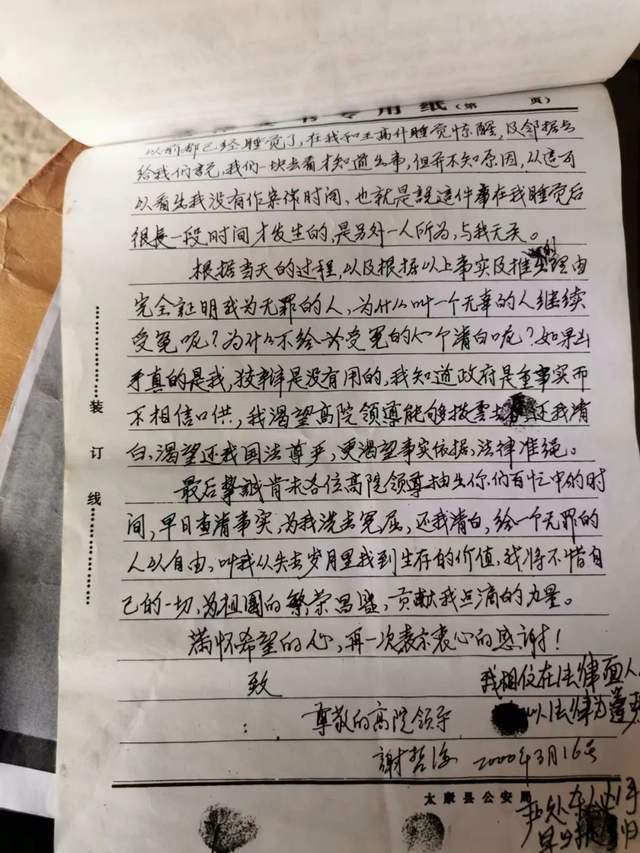 书专用纸(第 页)
以前都已经睡觉了,在我和王高什睡觉惊醒,及邻居去
给我们说,我们一块去看才知道出事,但并不知原因,从这可
以看出我没有作案作时间、也就是說這件事在我睡觉后
很長一段时间才发生的,是另外一人所為,与我无关。
根据当天的过程,以及根据以上事实及推理由
完全証明我为无罪的人,为什么叫一个无辜的人继续
受冤呢?为什么不给受冤的人个清白呢?如果出
手真的是我,狡辩是没有用的,我知道政府是重事实而
不相信口供,我渴望高院领导能够拨雲还我清
白,渴望还我国法尊严,更渴望事实依据,法律准绳。
最后摯誠肯求各位高院领导抽出你们百忙中的时
间,早日查清事实,为我洗去冤屈,还我清白,给一个无罪的
人以自由,叫我从失去岁月里找到生存的价值,我将不惜自
己的一切,为祖國的繁荣昌盛,贡献我点滴的力量。
满怀希望的心,再一次表示衷心的感谢!
致
我相信在法律面人
尊敬的高院领导
以法律为
謝哲海 2000年3月16号
太康县公安局
装
订
线